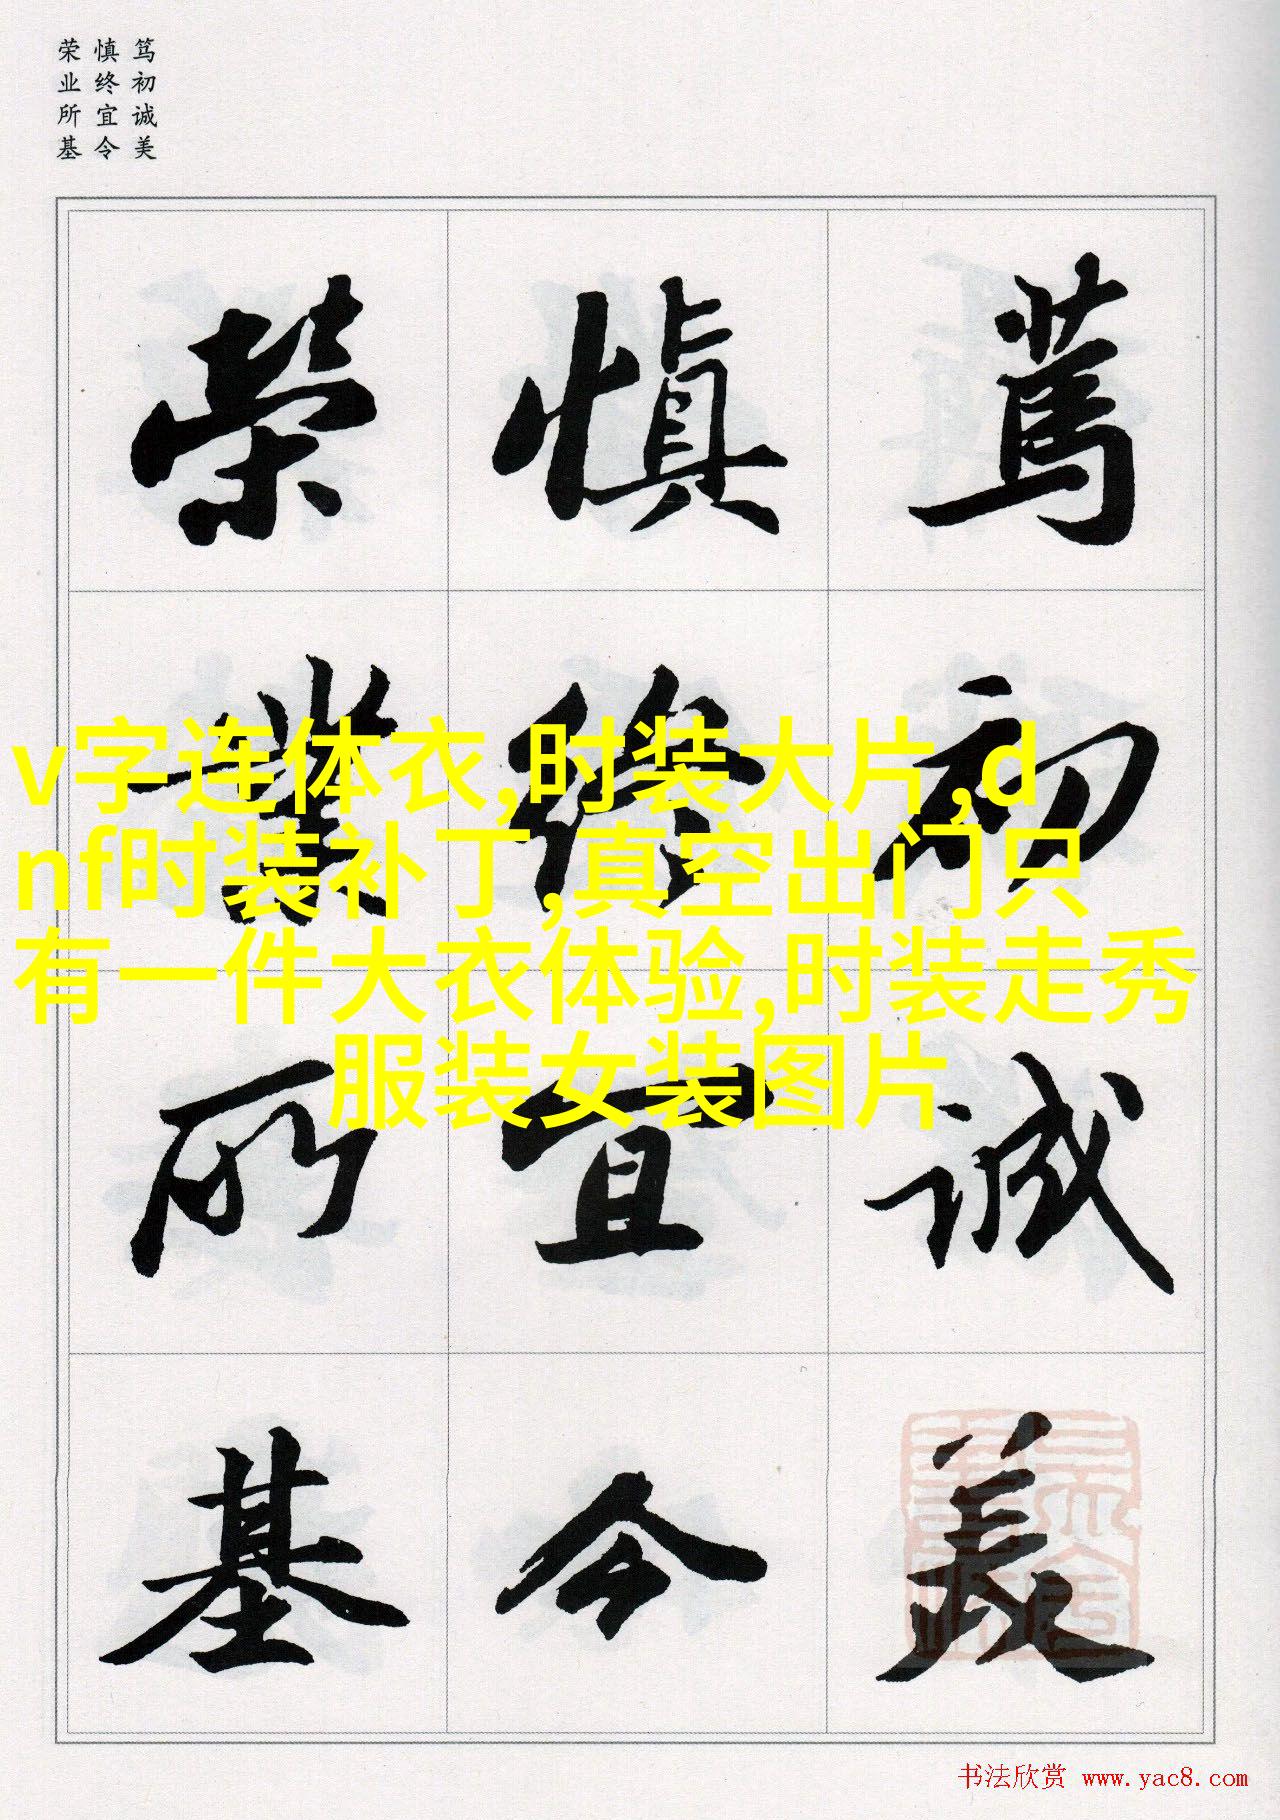 笃初诚美
慎终宜令
荣业所基
篤初诚美
慎终宜令
榮業所基
v字连体衣,时装大片,d
nf时装补丁,真空出门只
有一件大衣体验,时装走秀
服装女装图片
书法欣赏 www.yac8.com